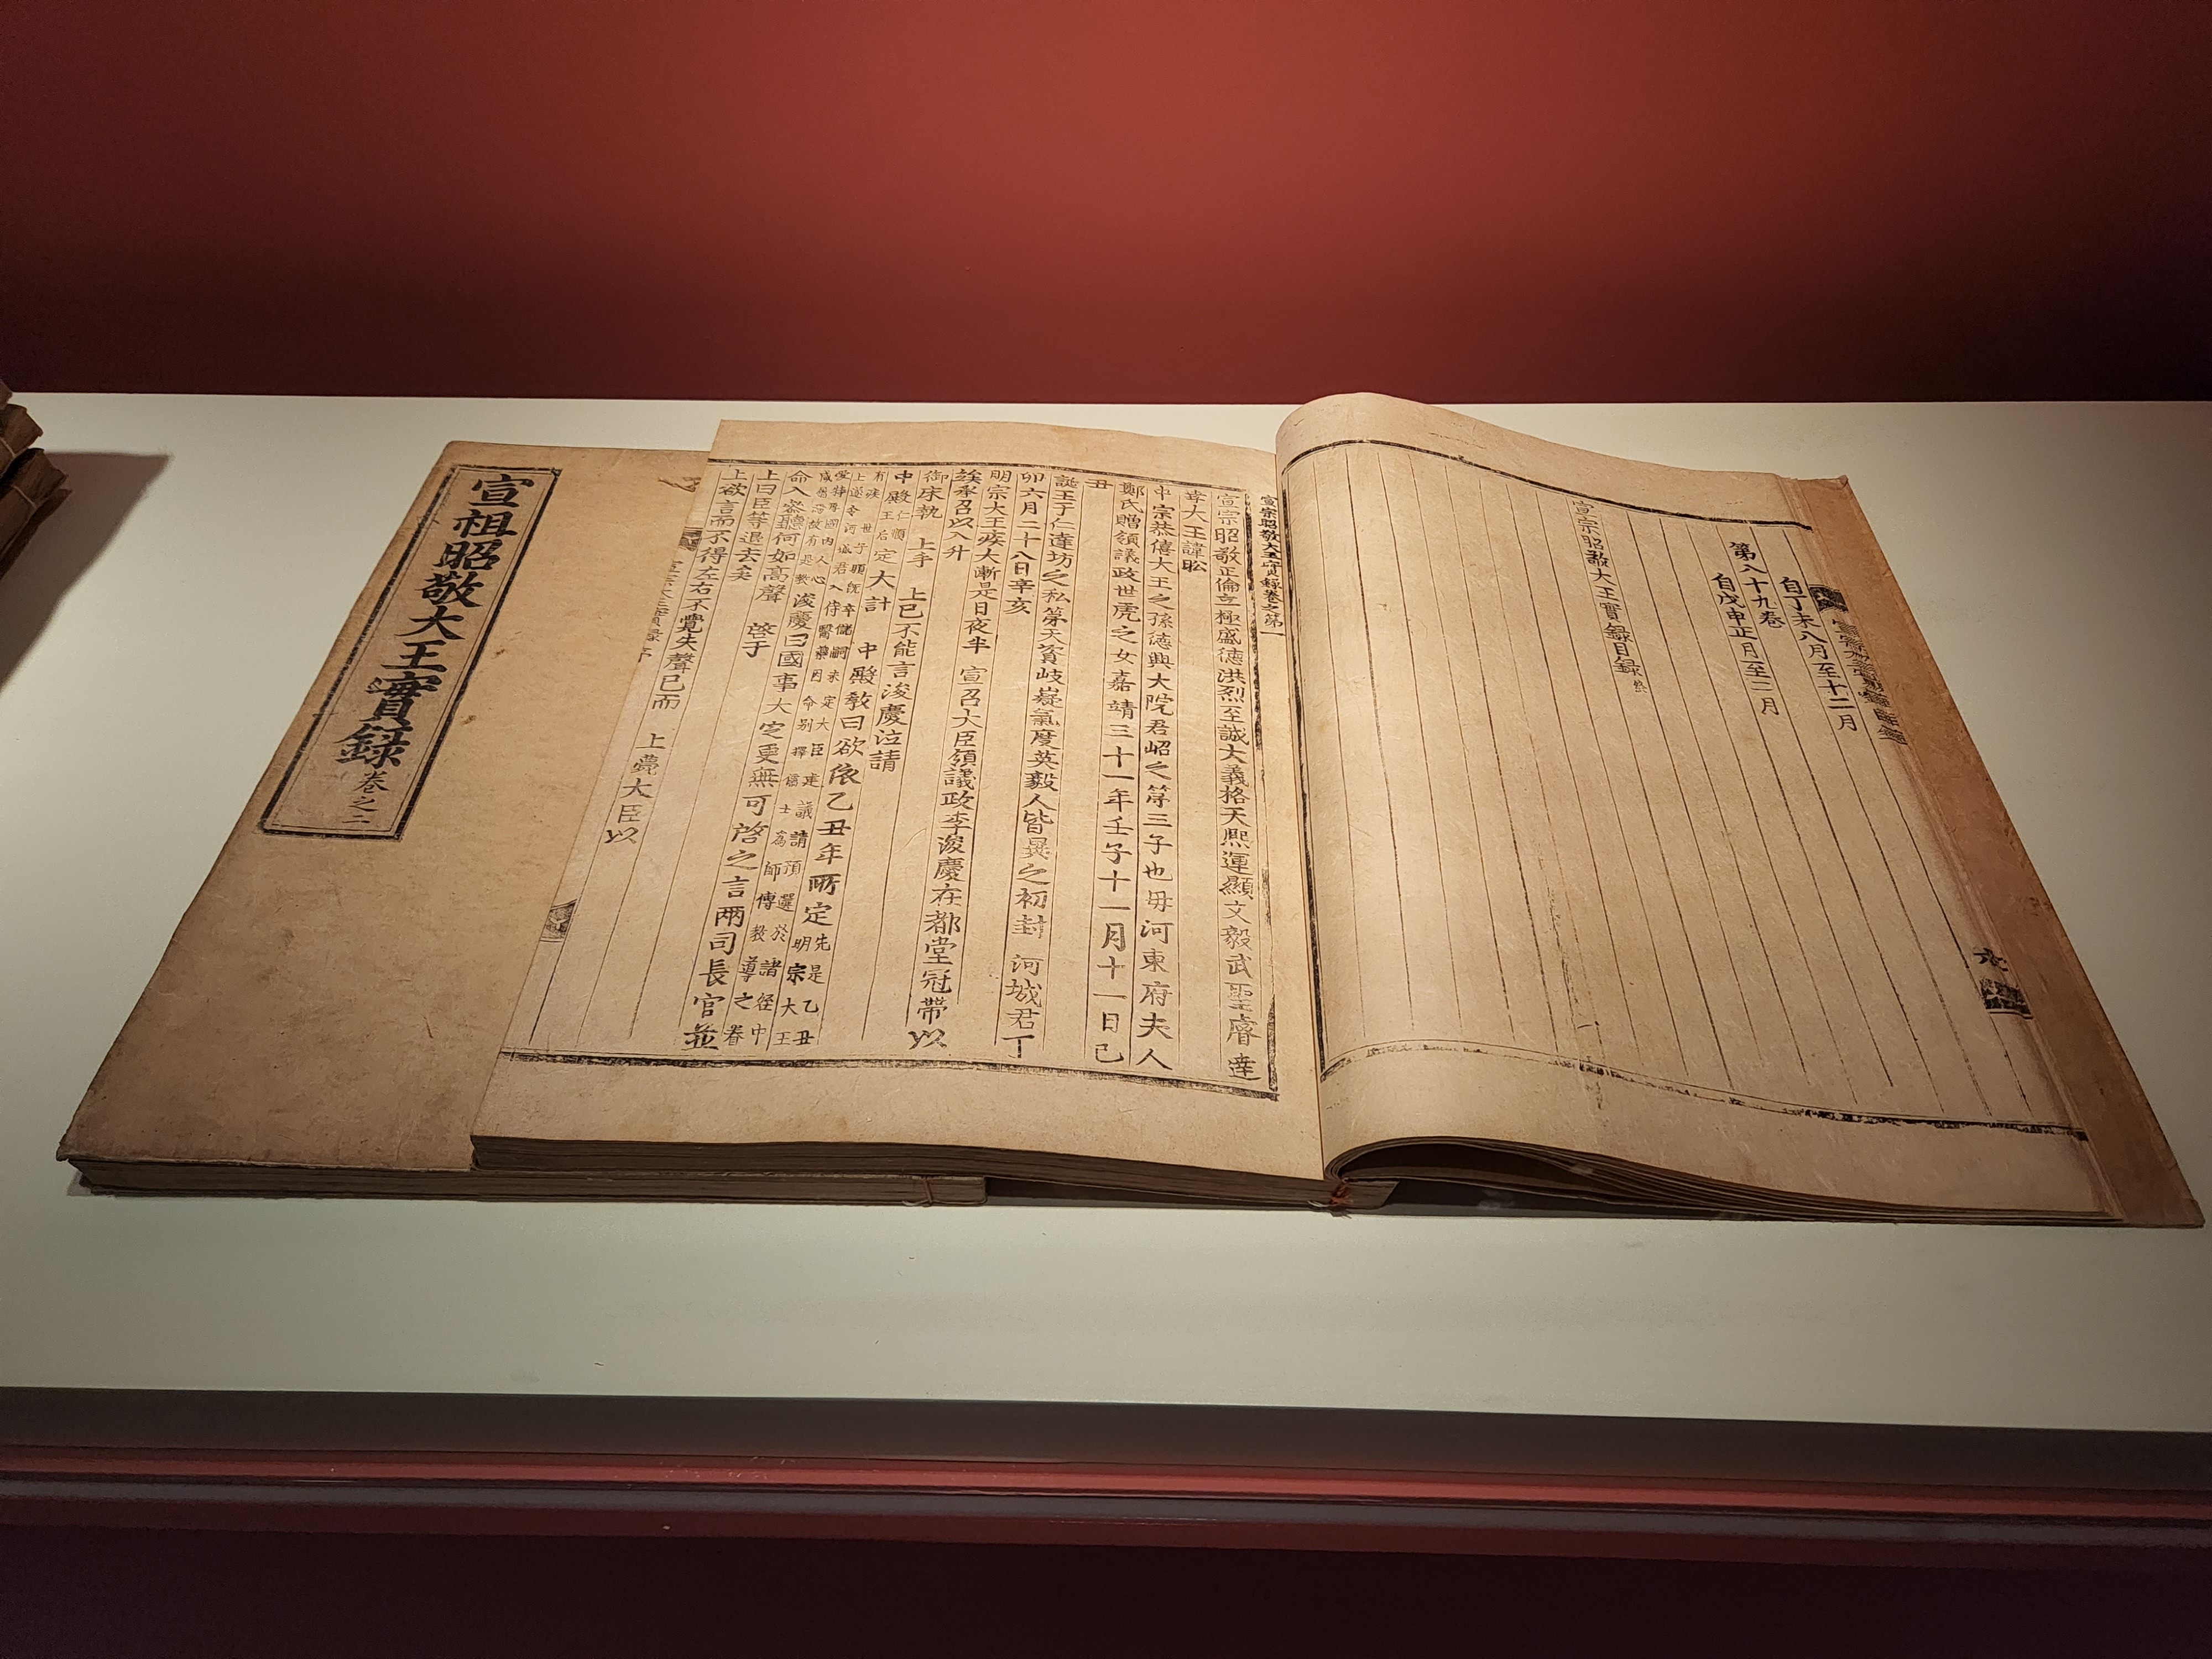 自丁未八月至十二月
第八十九卷
自戊申正月至二月
宣宗昭敬大王實錄目錄終
宣宗昭敬大王實錄卷之第一
宣宗昭敬正倫立極盛德洪烈至誠大義格天熙運顯文毅武聖睿達
孝大王諱昖
中宗恭僖大王之孫德興大院君岹之第三子也母河東府夫人
鄭氏贈領議政世虎之女嘉靖三十一年壬子十一月十一日己
丑
誕王于仁達坊之私第天資岐嶷氣度英毅人皆異之初封 河城君丁
卯六月二十八日辛亥
明宗大王疾大漸是日夜半 宣召大臣領議政李浚慶在都堂冠帶以
竢承召以入升
御床執 上手 上已不能言浚慶泣請
中殿仁順王后定大計 中殿敎曰欲依乙丑年所定先是乙丑明宗大王
有疾 世子順旣卒儲嗣未定大臣建議請預選於諸侄中
上遂令河城君入侍醫藥因命別擇儒士爲師傅敎導之眷
愛特異國內人心咸屬焉故有是敎浚慶曰國事大定更無可啓之言兩司長官並
命入參聽何如高聲 啓于
上曰臣等退去矣
上欲言而不得左右不覺失聲已而 上薨大臣以
宣祖昭敬大王實錄 卷之二